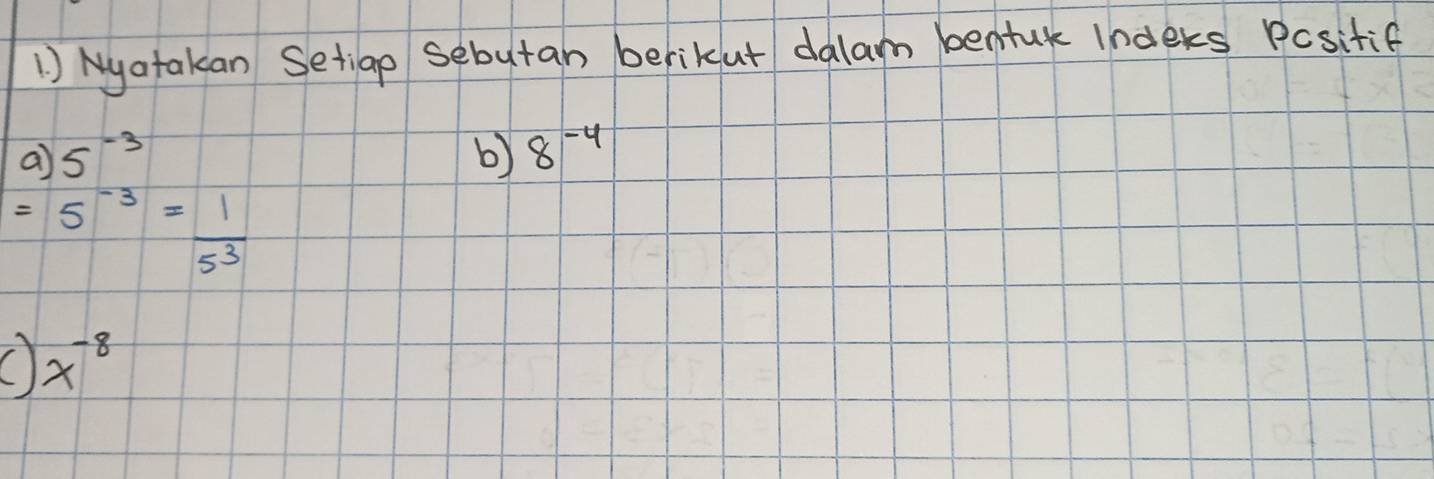 1.) Nyatakan Setiap Sebutan berikut dalam bentuk Indeks Positif
a) 5⁻³ b) 8⁻⁴
= 5⁻³ = 1/5³
c) x⁻⁸